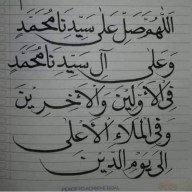 اللهم صل على سيدنا محمد
وعلى آل سيدنا محمد
فى الأولين والآخرين
وفى الملاء الأعلى
الى يوم الدين